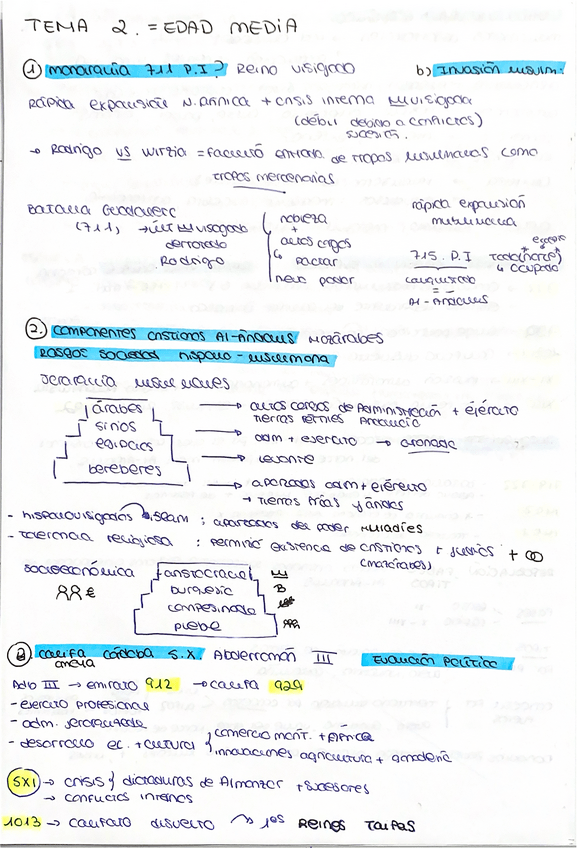 TEMA 2. = EDAD MEDIA
1) monarquía 711 P.I? Reino visigodo b) Invasión musulm:
Rápida expansión N. África + crisis interna M. visigoda
(débil debido a conflictos)
sucesión.
→ Rodrigo VS Witiza = facilitó entrada de tropas musulmanas como
tropas mercenarias
Batalla Guadalete
(711) →últ M visigodo
derrotado
Rodrigo
nobleza
+
altos cargos
↳ pactar
nevo poder
rápida expansión
musulmana
715. P.I Toda (norte) excepto
↳ ocupada
conquistado
=
Al-Ándalus
2. componentes cristianos Al-Ándalus Mozárabes
Rasgos sociedad hispano-musulmana
Jerarquía musulmanes
árabes → altos cargos de Administración + ejército
tierras fértiles Andalucía
sirios → adm + ejército → Granada
egipcios → levante
bereberes → apartados adm + ejército
→ tierras frías y áridas
- hispanovisigodos islam : apartados del poder Muladíes
- Tolerancia religiosa : permitió existencia de cristianos + judíos +
(mozárabes)
socioeconómica
€
aristocracia
burguesía B
campesinado
plebe
3. califa Córdoba S.X. Abderramán III Evolución Política
Abd III → emirato 912 → califa 929
- ejército profesional
- adm. jerarquizada
- desarrollo ec. + cultura { comercio marít. + África
innovaciones agricultura + ganadería
SXI → crisis { dictaduras de Almanzor + sucesores
→ conflictos internos
1013 → califato disuelto → 1os REINOS TAIFAS